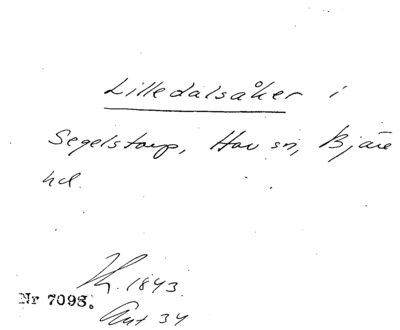 Lilledalsåker i
Segelstorp, Hov sn, Bjäre
hd.
Kt. 1843.
Nr 7098.
Akt 34